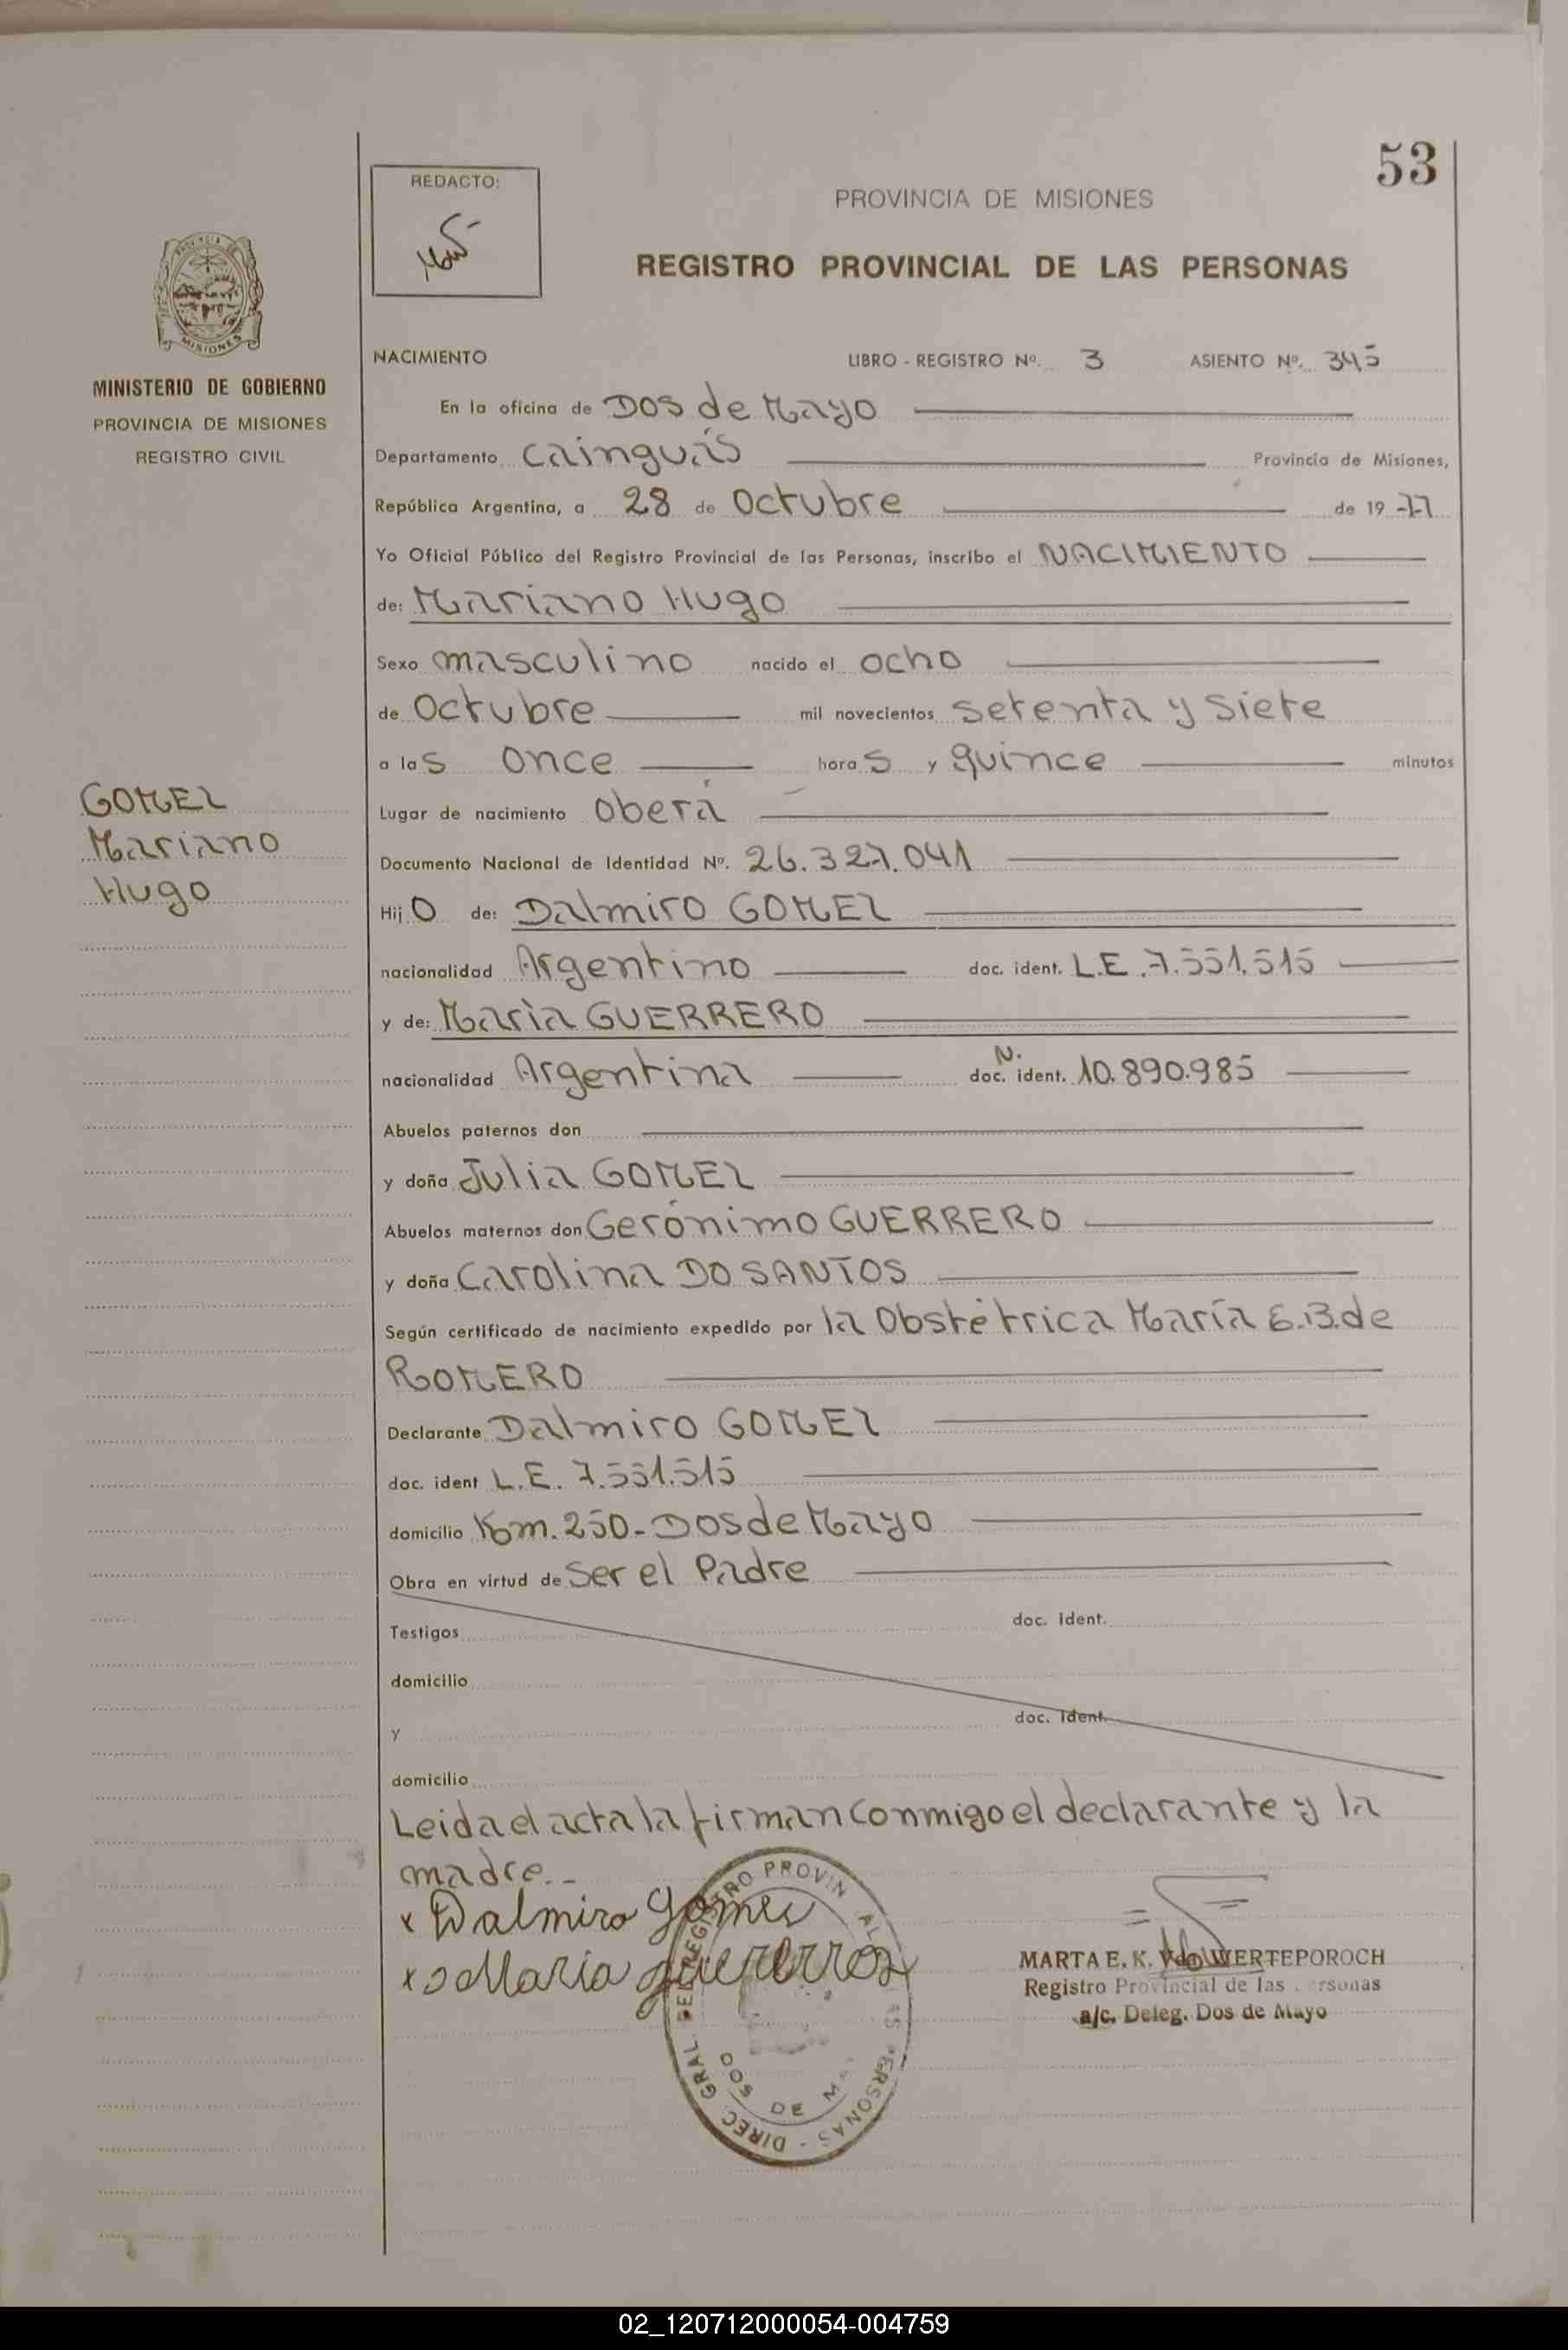 53
REDACTO:
PROVINCIA DE MISIONES
REGISTRO PROVINCIAL DE LAS PERSONAS
MISIONES
MINISTERIO DE GOBIERNO
PROVINCIA DE MISIONES
REGISTRO CIVIL
NACIMIENTO LIBRO - REGISTRO Nº. 3 ASIENTO Nº. 345
En la oficina de Dos de Mayo
Departamento Cainguás Provincia de Misiones,
República Argentina, a 28 de Octubre de 19 77
Yo Oficial Público del Registro Provincial de las Personas, inscribo el NACIMIENTO
de: Mariano Hugo
Sexo masculino nacido el ocho
de Octubre mil novecientos setenta y siete
a las once horas y quince minutos
GOMEZ
Mariano
Hugo
Lugar de nacimiento Oberá
Documento Nacional de Identidad Nº. 26.327.041
Hijo de: Dalmiro GOMEZ
nacionalidad Argentino doc. ident. L.E. 7.551.515
y de: María GUERRERO
nacionalidad Argentina doc. N. ident. 10.890.985
Abuelos paternos don
y doña Julia GOMEZ
Abuelos maternos don Gerónimo GUERRERO
y doña Carolina DO SANTOS
Según certificado de nacimiento expedido por la Obstétrica María E.B. de
ROMERO
Declarante Dalmiro GOMEZ
doc. ident L.E. 7.551.515
domicilio Km. 250 - Dos de Mayo
Obra en virtud de ser el Padre
Testigos doc. ident.
domicilio
y doc. ident.
domicilio
Leida el acta la firman conmigo el declarante y la
madre.-
x Dalmiro Gomez
x Maria guererros
DIREC. GRAL. DEL REGISTRO PROVINCIAL DE LAS PERSONAS -
DOS DE MAYO
MARTA E. K. Vda. WERTEPOROCH
Registro Provincial de las Personas
a/c. Deleg. Dos de Mayo
02_120712000054-004759